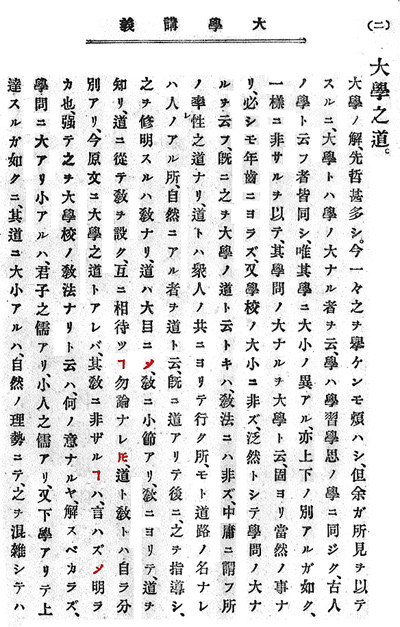 大學講義
(二)
大學之道。
大學ノ解、先哲甚多シ。今一々之ヲ擧ケンモ煩ハシ、但余ガ所見ヲ以テ
スルニ、大學トハ學ノ大ナル者ヲ云、學ハ學習學思ノ學ニ同ジク、古人
ノ學ト云フ者皆同シ、唯其學ニ大小ノ異アル、亦上下ノ別アルガ如ク、
一樣ニ非サルヲ以テ、其學問ノ大ナルヲ大學ト云、固ヨリ當然ノ事ナ
リ、必シモ年齒ニヨラズ、又學校ノ大小ニ非ズ、泛然トシテ學問ノ大ナ
ルヲ云フ、旣ニ之ヲ大學ノ道ト云トキハ、敎法ニハ非ズ、中庸ニ謂フ所
ノ率性之道ナリ、道トハ衆人ノ共ニヨリテ行ク所、モト道路ノ名ナレ
ハ人ノアル所、自然ニアル者ヲ道ト云、旣ニ道アリテ後ニ、之ヲ指導シ、
之ヲ修明スルハ敎ナリ、道ハ大目ニ〆、敎ニ小節アリ、敎ニヨリテ道ヲ
知リ、道ニ從テ敎ヲ設ク、互ニ相待ツヿ勿論ナレ𪜈、道ト敎トハ自ラ分
別アリ、今原文ニ大學之道トアレバ、其敎ニ非ザルヿハ、言ハズ〆明ラ
カ也、强テ之ヲ大學校ノ敎法ナリト云ハ、何ノ意ナルヤ、解スベカラズ、
學問ニ大アリ小アルハ、君子之儒アリ、小人之儒アリ、又下學アリテ上
達スルガ如クニ、其道ニ大小アルハ、自然ノ理勢ニテ、之ヲ混雜シテハ